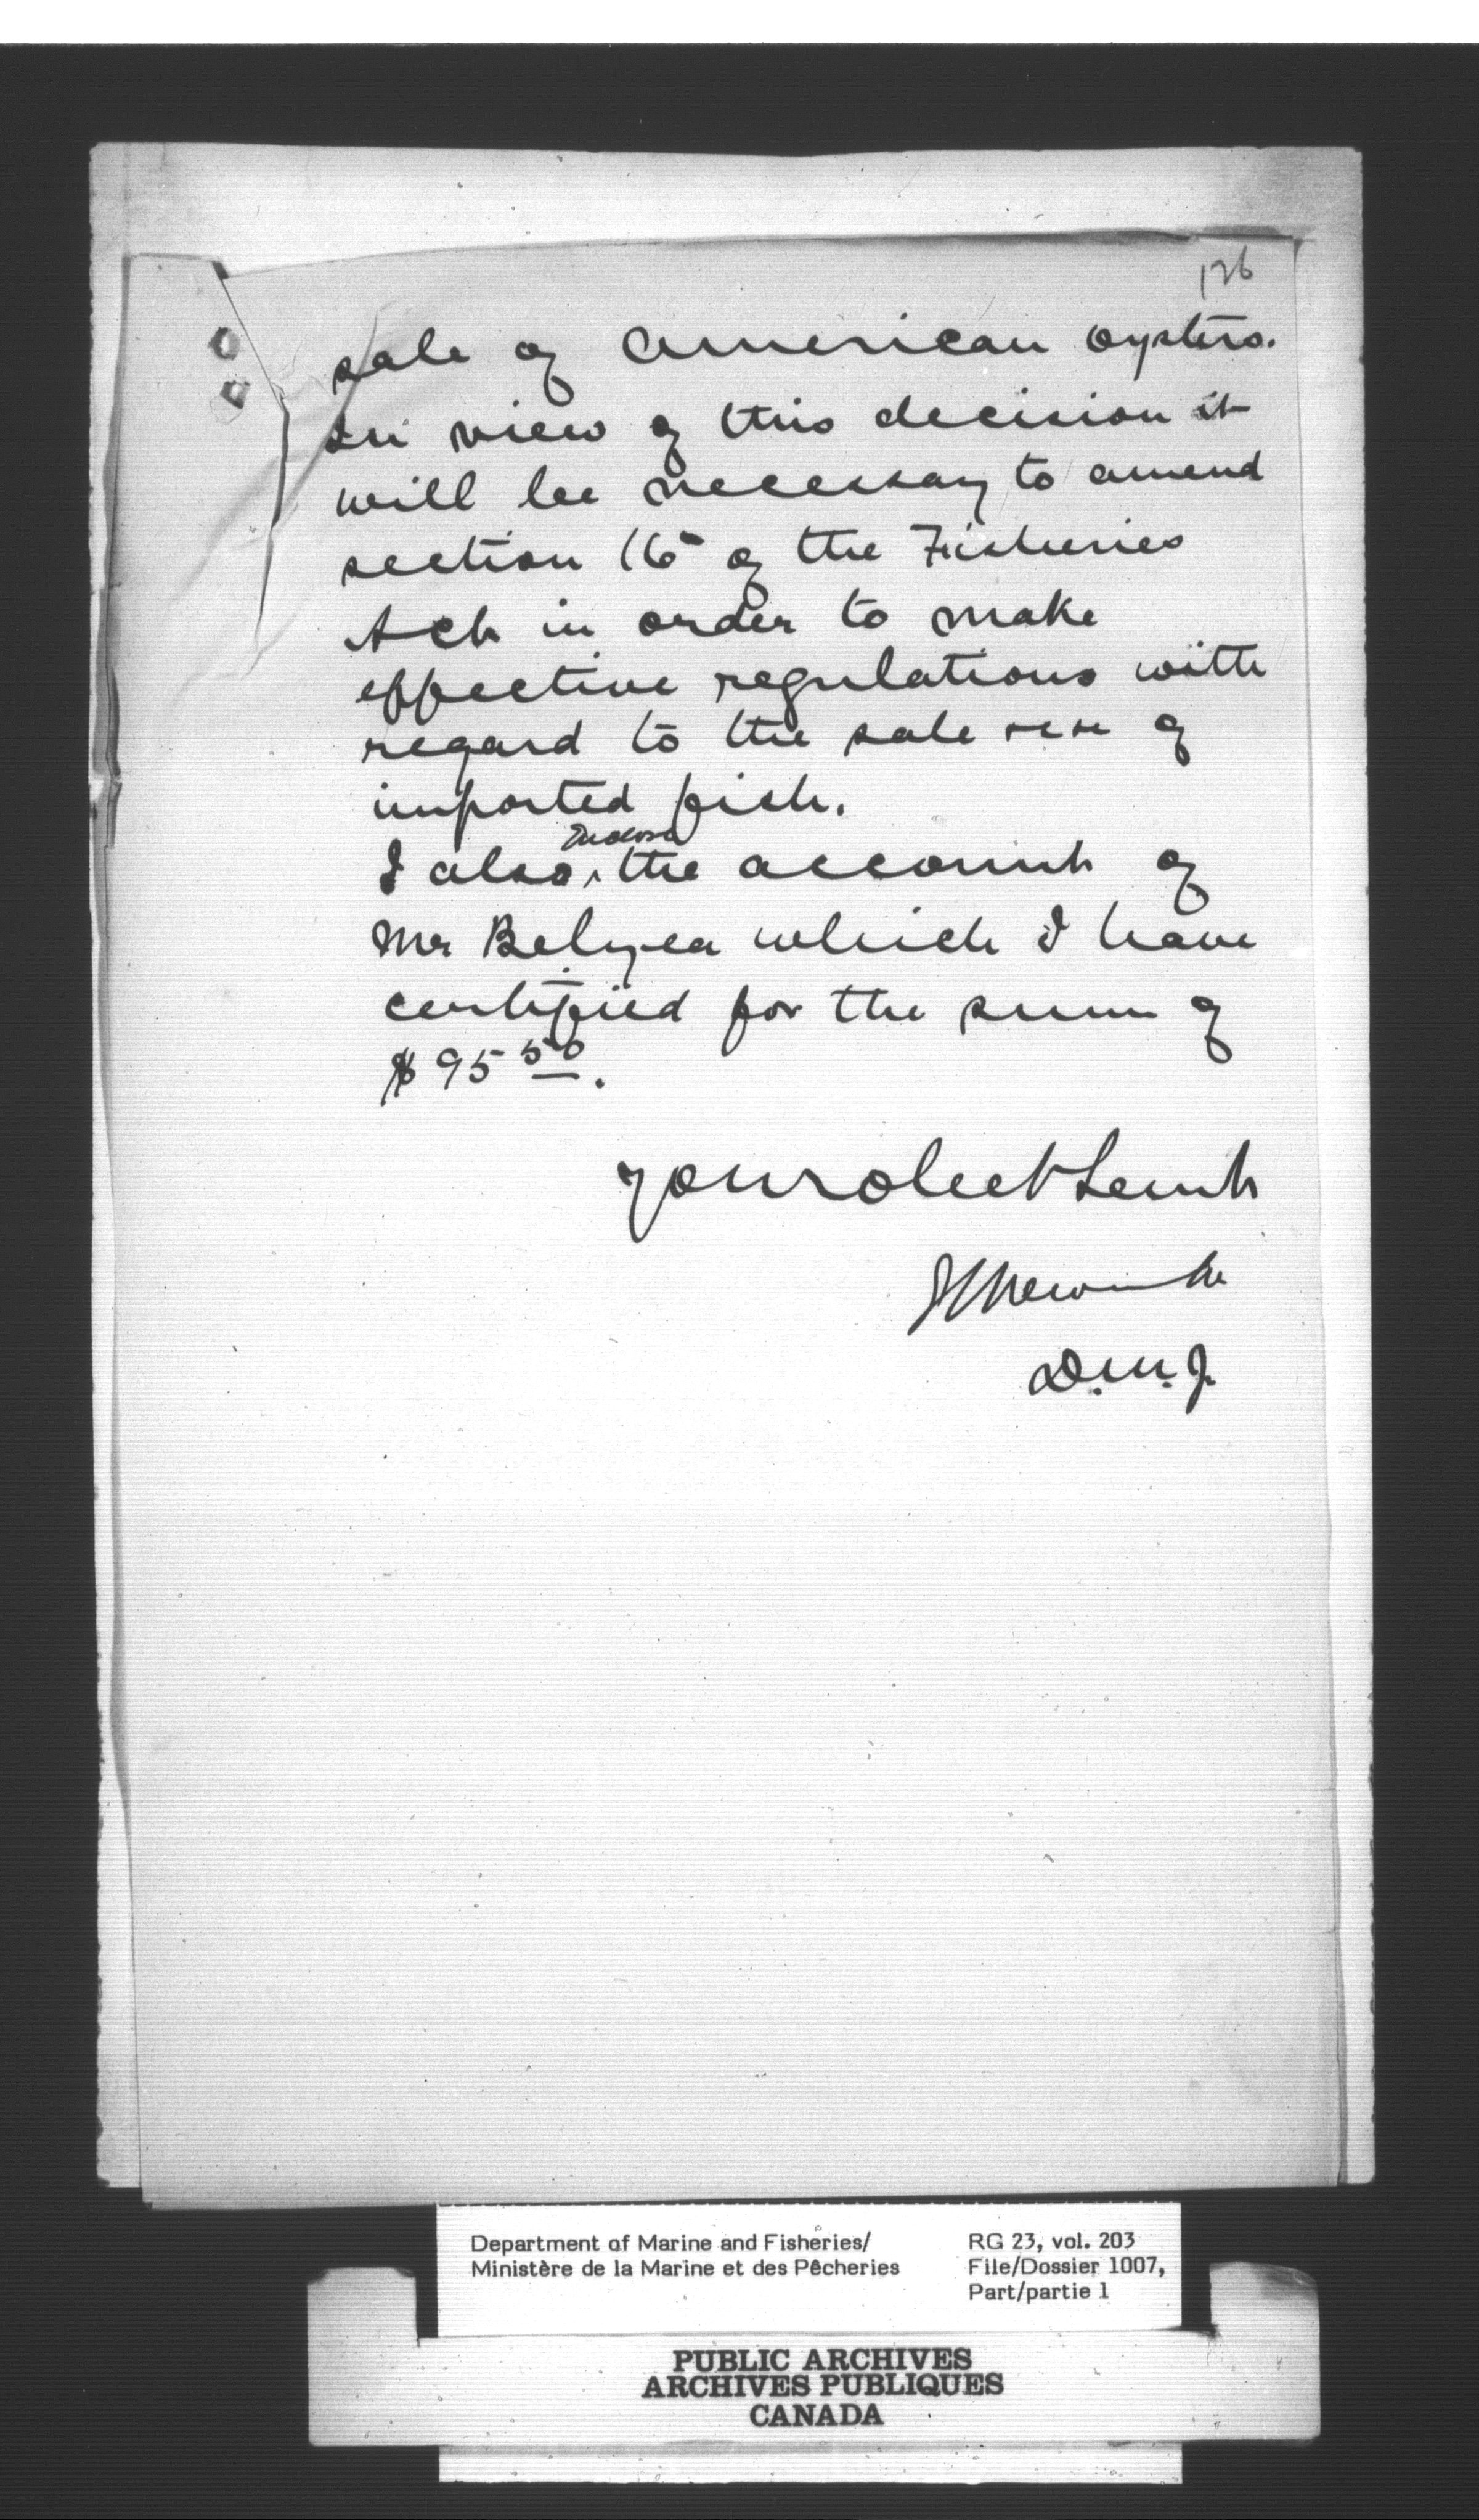 126
sale of American oysters.
In view of this decision it
will be necessary to amend
section 16 of the Fisheries
Act in order to make
effective regulations with
regard to the sale of
imported fish.
enclose
I also ‸ the account of
Mr Belyea which I have
certified for the sum of
$95 50.
Your obedt Servt
Newcombe
D.M.J.
Department of Marine and Fisheries/
Ministère de la Marine et des Pêcheries
RG 23, vol. 203
File/Dossier 1007,
Part/partie 1
PUBLIC ARCHIVES
ARCHIVES PUBLIQUES
CANADA